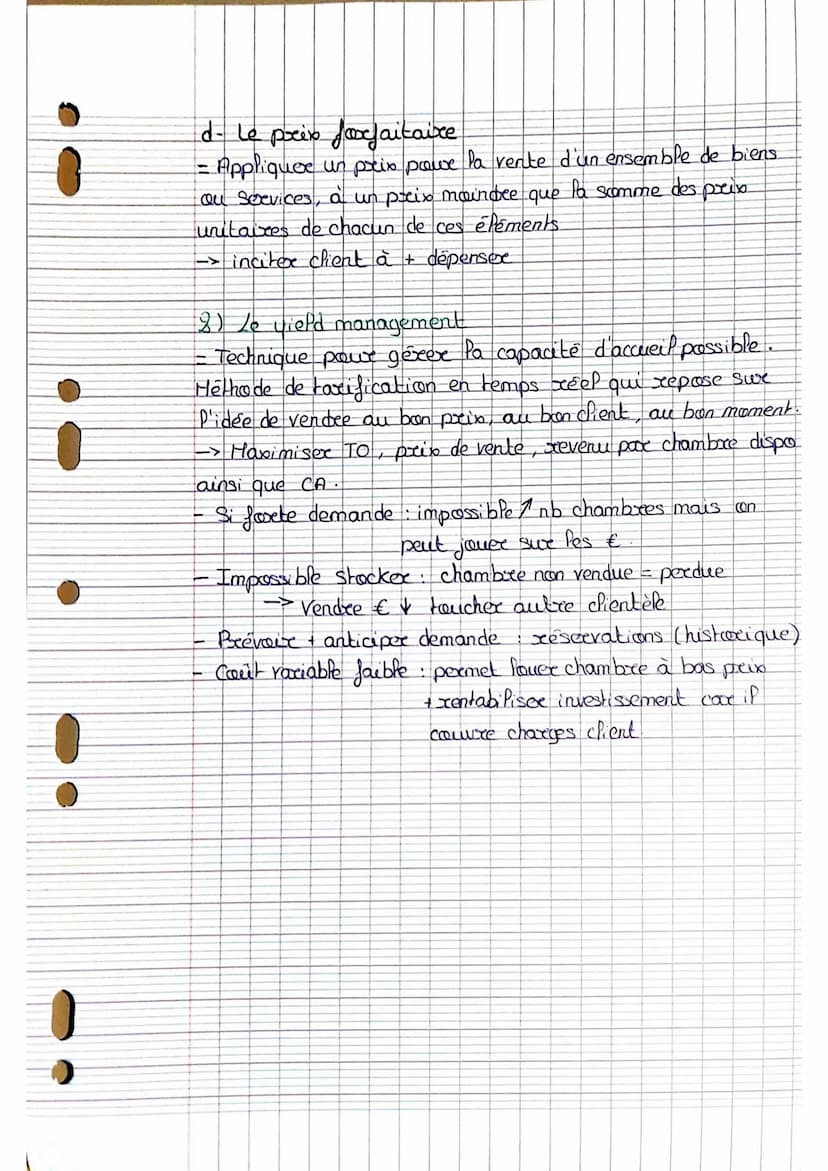 d- Le prix forfaitaire
= Appliquer un prix pour la vente d'un ensemble de biens
ou services, à un prix moindre que la somme des prix
unitaires de chacun de ces éléments
-> inciter client à + dépenser
2) Le yield management
= Technique pour gérer la capacité d'accueil possible.
Méthode de tarification en temps réel qui repose sur
l'idée de vendre au bon prix, au bon client, au bon moment.
-> Maximiser TO, prix de vente, revenu par chambre dispo
ainsi que CA.
- Si forte demande : impossible ↗ nb chambres mais on
peut jouer sur les €.
- Impossible stocker : chambre non vendue = perdue
-> Vendre € ↓ toucher autre clientèle
- Prévoir + anticiper demande : réservations (historique)
- Coût variable faible : permet louer chambre à bas prix
+ rentabiliser investissement car il
couvre charges client